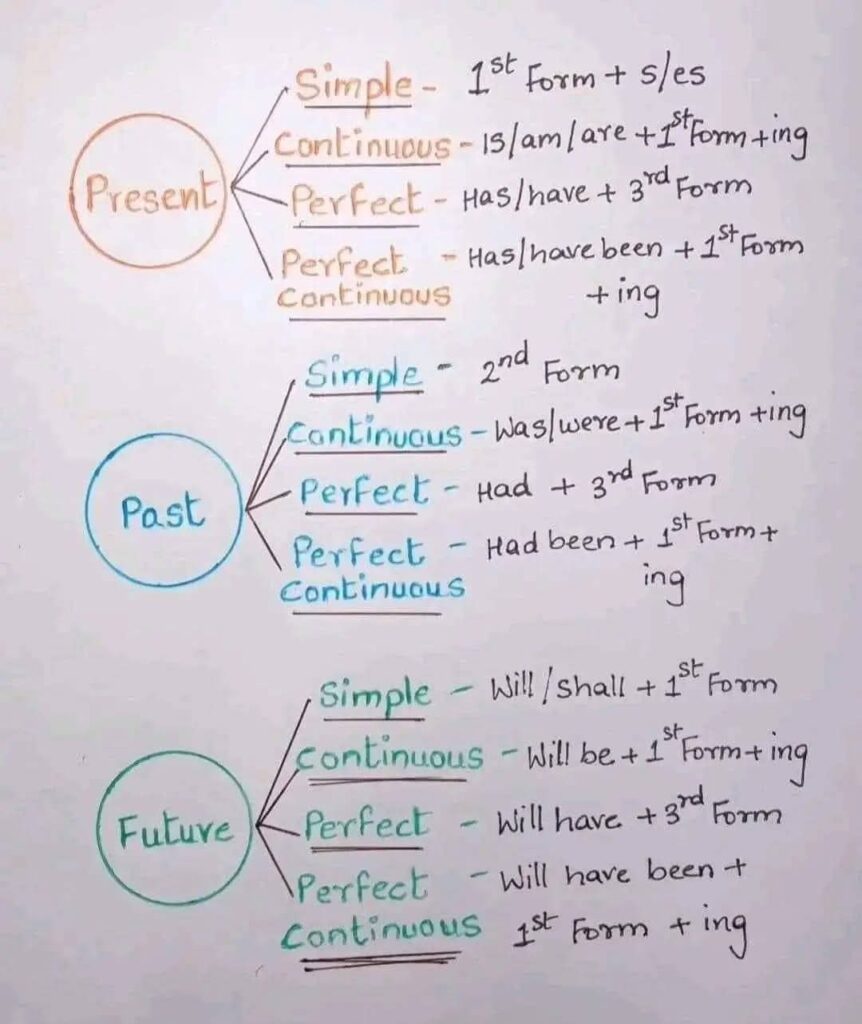 Present
Simple - 1st Form + s/es
Continuous - Is/am/are + 1st Form + ing
Perfect - Has/have + 3rd Form
Perfect - Has/have been + 1st Form
Continuous + ing
Past
Simple - 2nd Form
Continuous - Was/were + 1st Form + ing
Perfect - Had + 3rd Form
Perfect - Had been + 1st Form +
Continuous ing
Future
Simple - Will/shall + 1st Form
Continuous - Will be + 1st Form + ing
Perfect - Will have + 3rd Form
Perfect - Will have been +
Continuous 1st Form + ing